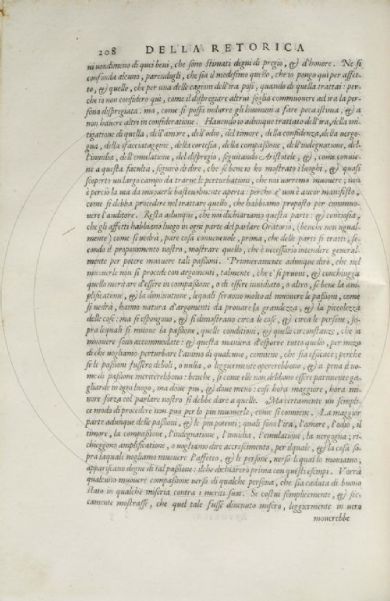 208 DELLA RETORICA
ni nondimeno di quei beni, che sono stimati degni di pregio, & d'honore. Ne si
confonda alcuno, parendogli, che sia il medesimo quello, che io pongo qui per affet-
to, & quelle, che per una delle cagioni dell'ira posi, quando di quella trattai: per-
che io non considero qui, come il dispregiare altrui soglia commuovere ad ira la per-
sona dispregiata: ma, come si possi indurre gli huomini a fare poca stima, & a
non havere altri in consideratione. Havendo io adunque trattato dell'ira, della mi-
tigatione di quella, dell'amore, dell'odio, del timore, della confidenza, della vergo-
gna, della sfacciatagine, della cortesia, della compassione, dell'indegnatione, del-
l'invidia, dell'emulatione, del dispregio, seguitando Aristotele, &, come convie-
ne a questa facultà, siguro è dire, che si bene io ho mostrato i luoghi, & quasi
scoperto un largo campo da trarne le perturbationi, che noi vorremo muovere; non
è perciò la via da muoverle bastevolmente aperta: perche è non è ancor manifesto,
come si debba procedere nel trattare quello, che habbiamo proposto per commuo-
vere l'auditore. Resta adunque, che noi dichiariamo questa parte: & conciosia,
che gli affetti habbiano luogo in ogni parte del parlare Oratorio, (benche non ugual-
mente) come si vedrà, pare cosa conveniente, prima, che delle parti si tratti, se-
condo il proponimento nostro, mostrare quello, che è necessario intendere general-
mente per potere muovere tali passioni. Primieramente adunque dico, che nel
muoverle non si procede con argomenti, talmente, che è si pruovi, & conchiugga
quello meritare d'essere in compassione, o di essere invidiato, o altro, se bene la am-
plificatione, & la diminutione, lequali servono molto al muovere le passioni, come
si vedrà, hanno natura d'argomenti da provare la grandezza, & la picciolezza
delle cose: ma si espongono, & si dimostrano circa le cose, & circa le persone, so-
pra lequali si muove la passione, quelle conditioni, & quelle circunstanze, che a
muovere sono accommodate: & questa maniera d'esporre tutto quello, per mez-
di che vogliamo perturbare l'animo di qualcuno, conviene, che sia efficace; perche
se le passioni fussero deboli, o nulla, o leggiermente opererebbono, & a pena il no-
me di passioni meriterebbono: benche, si come elle non debbono essere parimente ga-
gliarde in ogni luogo, ma dove piu, & dove meno; così hora maggiore, hora mi-
nore forza col parlare nostro si debbe dare a quelle. Ma certamente un sempli-
ce modo di procedere non può per lo piu muoverle, come si conviene. La maggior
parte adunque delle passioni, & le piu potenti; quali sono l'ira, l'amore, l'odio, il
timore, la compassione, l'indegnatione, l'invidia, l'emulatione, la vergogna; ri-
cheggono amplificatione, o vogliamo dire accrescimento, per ilquale, & la cosa so-
pra laquale vogliamo muovere l'affetto, & le persone, verso le quali lo moviamo,
apparischino degne di tal passione: ilche dichiarerò prima con questi esempi. Vorrà
qualcuno muovere compassione verso di qualche persona, che sia caduta di buono
stato in qualche miseria contra i meriti suoi. Se costui semplicemente, & sec-
camente mostrasse, che quel tale fusse divenuto misero, leggiermente in vero
moverebbe